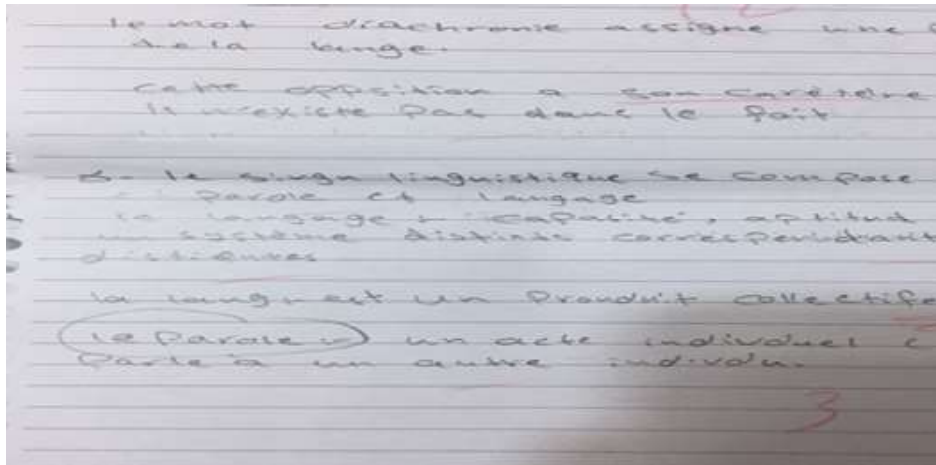 le mot diachronie assigne une
de la lange.
cette oppsition a son carètère
Il n'existe pas dans le fait
6- le singn linguistique se compose
parole et langage
le langage : "capacité", aptitud
un système distincts correspendant
distinctes
la langu est un Prouduit collectife
le Parole un acte indivduel
Parle à un autre indivdu.
3